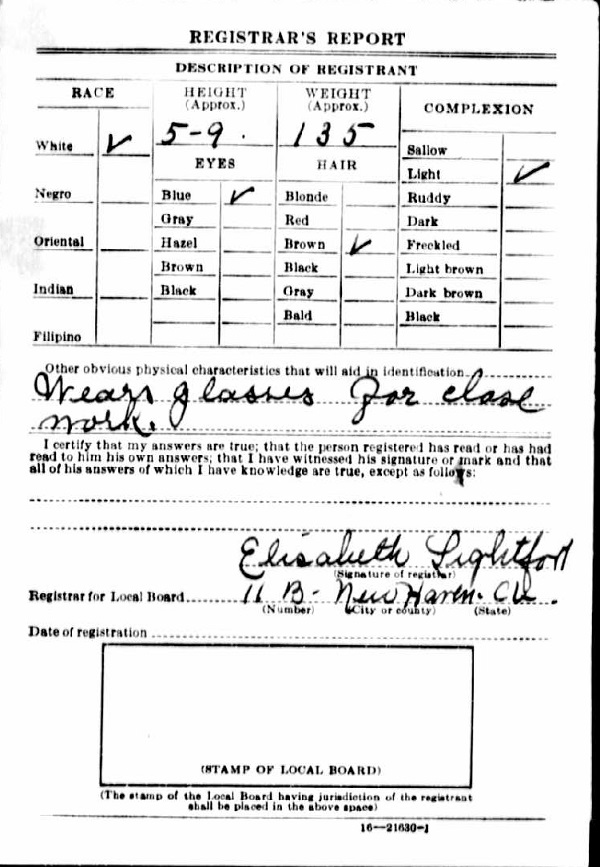 REGISTRAR'S REPORT
DESCRIPTION OF REGISTRANT
RACE
HEIGHT (Approx.)
WEIGHT (Approx.)
COMPLEXION
White ✓
5-9.
135
Sallow
EYES
HAIR
Light ✓
Negro
Blue ✓
Blonde
Ruddy
Gray
Red
Dark
Oriental
Hazel
Brown ✓
Freckled
Brown
Black
Light brown
Indian
Black
Gray
Dark brown
Bald
Black
Filipino
Other obvious physical characteristics that will aid in identification
Wears glasses for close
work.
I certify that my answers are true; that the person registered has read or has had
read to him his own answers; that I have witnessed his signature or mark and that
all of his answers of which I have knowledge are true, except as follows:
Elisabeth Lightfoot
(Signature of registrar)
Registrar for Local Board 11 B- New Haven.
(Number) (City or county) (State)
Date of registration
(STAMP OF LOCAL BOARD)
(The stamp of the Local Board having jurisdiction of the registrant
shall be placed in the above space)
16—21630-1